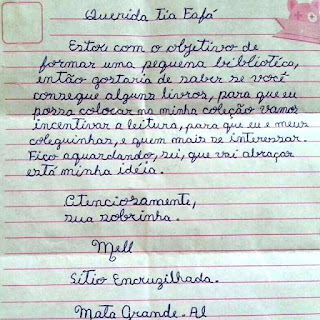 Querida Tia Fafá
Estou com o objetivo de
formar uma pequena biblioteca,
então gostaria de saber se você
consegue alguns livros, para que eu
possa colocar na minha coleção vamos
incentivar a leitura, para que eu e meus
coleguinhas, e quem mais se interessar.
Fico aguardando, sei, que vai abraçar
está minha idéia.
Atenciosamente,
sua sobrinha.
Mell
Sítio Encruzilhada.
Mata Grande. Al